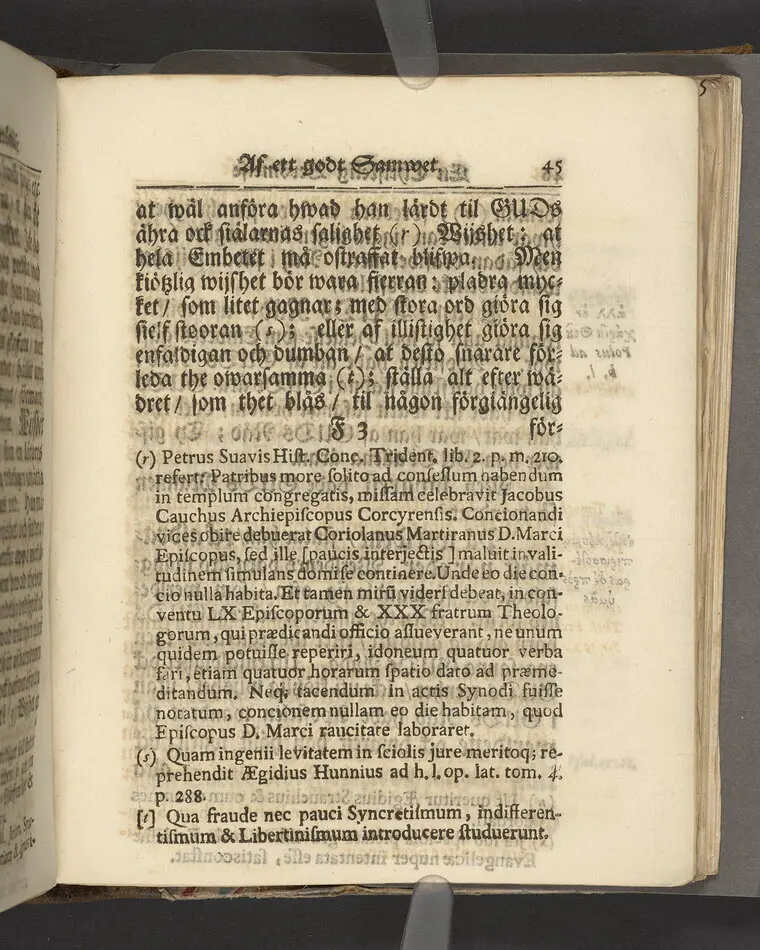 Af ett godt Samwet. 45
at wäl anföra hwad han lärdt til GUDs
ähra och siälarnas salighet (r) Wijshet: at
hela Embetet må ostraffat blifwa. Men
kiötzlig wijshet bör wara fierran: pladra myc⸗
ket / som litet gagnar; med stora ord giöra sig
sielf stooran (s); eller af illistighet giöra sig
enfaldigan och dumban / at desto snarare för⸗
leda the owarsamma (t); ställa alt efter wä⸗
dret / som thet blås / til någon förgiängelig
F 3 för⸗
(r) Petrus Suavis Hiſt. Conc. Trident. lib. 2. p. m. 210.
refert: Patribus more ſolito ad conſeſſum habendum
in templum congregatis, miſſam celebravit Jacobus
Cauchus Archiepiſcopus Corcyrenſis. Concionandi
vices obire debuerat Coriolanus Martiranus D. Marci
Epiſcopus, ſed ille [paucis interjectis] maluit invali-
tudinem ſimulans domi ſe continere. Unde eo die con-
cio nulla habita. Et tamen mirũ videri debeat, in con-
ventu LX Epiſcoporum & XXX fratrum Theolo-
gorum, qui prædicandi officio aſſueverant, ne unum
quidem potuiſſe reperiri, idoneum quatuor verba
fari, etiam quatuor horarum ſpatio dato ad præme-
ditandum. Neq; tacendum in actis Synodi fuiſſe
notatum, concionem nullam eo die habitam, quod
Epiſcopus D. Marci raucitate laboraret.
(s) Quam ingenii levitatem in ſciolis jure meritoq; re-
prehendit Ægidius Hunnius ad h. l. op. lat. tom. 4.
p. 288.
[t] Qua fraude nec pauci Syncretiſmum, indifferen-
tiſmum & Libertiniſmum introducere ſtuduerunt.